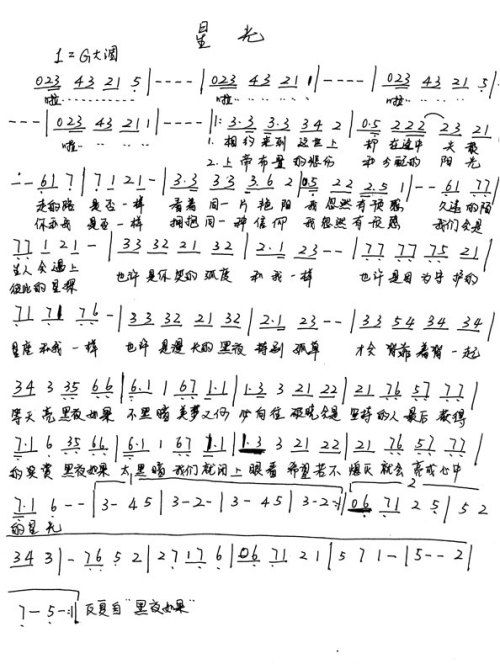 星光
1=G大调
023 43 21 5 | ---- | 023 43 21 1 | ---- | 023 43 21 5 |
啦………… 啦………… 啦…………
---- | 023 43 21 1 | ---- |: 3·3 3·3 34 2 | 0·5 222 23 21 |
啦………… 1. 相约来到这世上 却在途中失散
2. 上帝布置的
-- 61 7 | 7 1 21 - | 3·3 33 3·6 2 | 0·5 22 2·5 1 | -- 61 77 |
走的路 是否一样 看着同一片艳阳 我忽然有预感 久违的陌
你和我 是否一样 拥抱同一种信仰 我忽然有预感 我们会是
77 1 21 - | 33 32 21 32 | 2·1 23 -- | 77 77 75 21 |
生人会遇上 也许是你笑的弧度 和我一样 也许是因为守护的
彼此的星球
71 71 76 - | 33 32 21 32 | 2·1 23 -- | 33 54 34 34 |
星座和我一样 也许是漫长的黑夜 特别孤单 才会背靠着背一起
34 3 35 66 | 6·1 1 67 1·1 | 1·3 3 21 22 | 21 76 57 77 |
等天亮 黑夜如果 不黑暗 美梦又何 必向往 破晓会是 坚持的人 最后获得
7·1 6 35 66 | 6·1 1 67 1·1 | 1·3 3 21 22 | 21 76 57 77 |
的奖赏 黑夜如果 太黑暗 我们就闭上眼看 希望若不 熄灭就会 亮成心中
7·1 6 -- | 3- 45 | 3-2- | 3- 45 | 3-2-:| 06 71 25 | 52
的星光
343 | - 76 52 | 27 17 6 | 06 71 21 | 571- | 5--2 |
7-5-:| 反复自“黑夜如果”